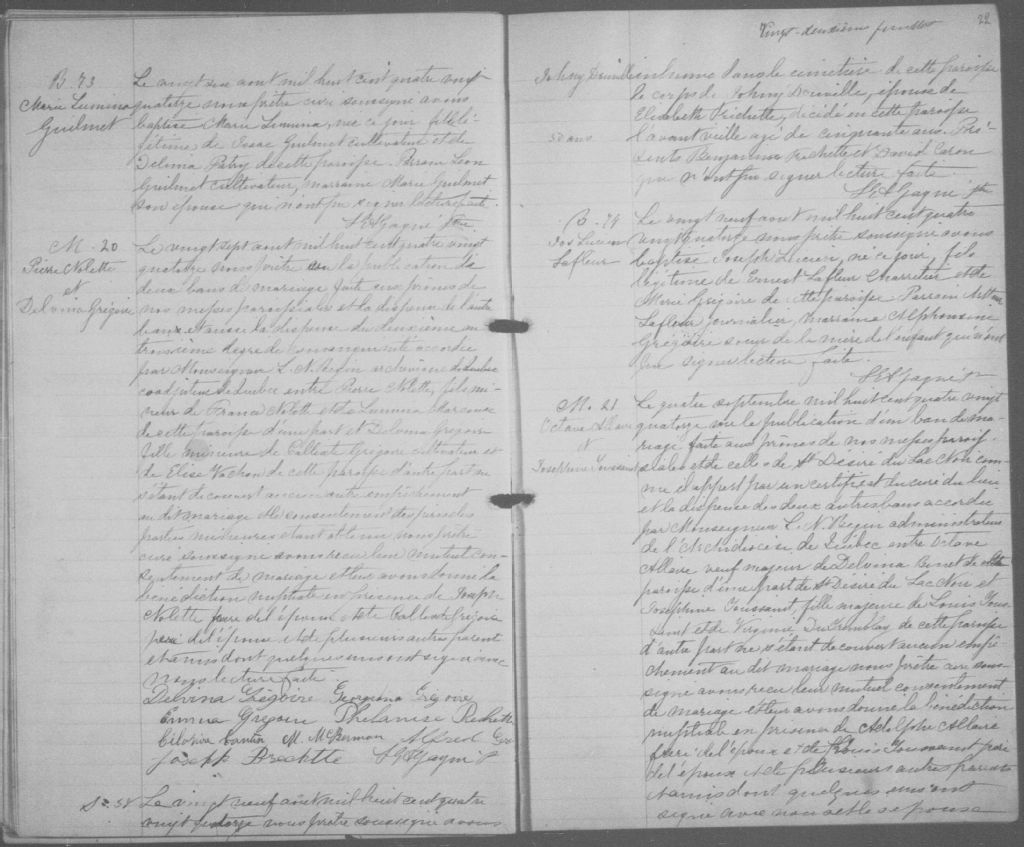 B. 73
Marie Lumina
Guilmet
Le vingt six aout mil huit cent quatre vingt
quatorze nous prêtre curé soussigné avons
baptisé Marie Lumina, née ce jour fille lé-
gitime de Isaac Guilmet cultivateur et de
Delima Patry de cette paroisse. Parrain Léon
Guilmet cultivateur, marraine Marie Guilmet
son épouse qui n'ont pu signer lecture faite.
Gagné ptre
M. 20
Pierre Nolette
et
Delvina Grégoire
Le vingt sept aout mil huit cent quatre vingt
quatorze nous prêtre vu la publication de
deux bans de mariage faite aux prônes de
nos messes paroissiales et la dispense de l'autre
ban et aussi la dispense du deuxième au
troisième degré de consanguinité accordée
par Monseigneur L. N. Bégin
coadjuteur de Québec entre Pierre Nolette, fils mi-
neur de Nolette et de Lumina Marcoux
de cette paroisse d'une part et Delvina Grégoire
fille mineure de Calleste Grégoire cultivateur et
de Elise Vachon de cette paroisse d'autre part ne
s'étant découvert aucun autre empêchement
au dit mariage et le consentement des parents des
parties mineures étant obtenu nous prêtre
curé soussigné avons reçu leur mutuel con-
sentement de mariage et leur avons donné la
bénédiction nuptiale en présence de Joseph
Nolette frère de l'époux et de Calleste Grégoire
père de l'épouse et de plusieurs autres parents
et amis dont quelques uns ont signé avec
nous lecture faite.
Delvina Grégoire Georgiana Grégoire
Emma Grégoire
M. Alfred
Joseph Gagné
S. 38
Le vingt neuf aout mil huit cent quatre
vingt quatorze nous prêtre soussigné avons
Vingt-deuxième feuillet
22
Johny
50 ans
inhumé dans le cimetière de cette paroisse
le corps de Johny époux de
Elisabeth décédé en cette paroisse
l'avant veille agé de cinquante ans. Pré-
sents Benjamin et David Caron
qui n'ont pu signer lecture faite.
Gagné ptre
B. 74
Jos Lucien
Lafleur
Le vingt neuf aout mil huit cent quatre
vingt quatorze nous prêtre soussigné avons
baptisé Joseph Lucien, né ce jour, fils
légitime de Ernest Lafleur charretier et de
Marie Grégoire de cette paroisse Parrain Arthur
Lafleur journalier, marraine Alphonsine
Grégoire soeur de la mère de l'enfant qui n'ont
pu signer lecture faite.
Gagné ptre
M. 21
Octave Allaire
et
Josephine Toussaint
Le quatre septembre mil huit cent quatre vingt
quatorze vu la publication d'un ban de ma-
riage faite aux prônes de nos messes parois-
siales et de celles de St Désiré du Lac Noir com-
me il appert par un certificat du curé du lieu
et la dispense des deux autres bans accordée
par Monseigneur L. N. Bégin administrateur
de l'Archidiocèse de Québec entre Octave
Allaire veuf majeur de Delvina de cette
paroisse d'une part de St Désiré du Lac Noir et
Josephine Toussaint, fille majeure de Louis Tous-
saint et de Virginie Du Tremblay de cette paroisse
d'autre part ne s'étant découvert aucun empê-
chement au dit mariage nous prêtre curé sous-
signé avons reçu leur mutuel consentement
de mariage et leur avons donné la bénédiction
nuptiale en présence de Adolphe Allaire
frère de l'époux et de Louis Toussaint père
de l'épouse et de plusieurs autres parents
et amis dont quelques uns ont
signé avec nous et les epoux